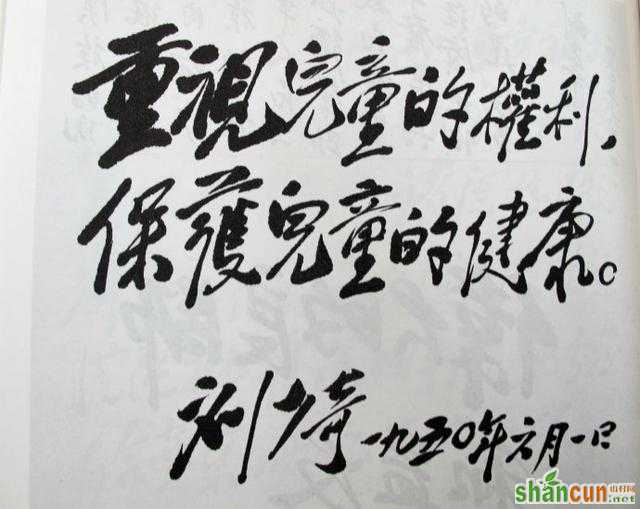 重視兒童的權利，
保護兒童的健康。
刘少奇 一九五〇年六月一日
shancun 山村网
.net